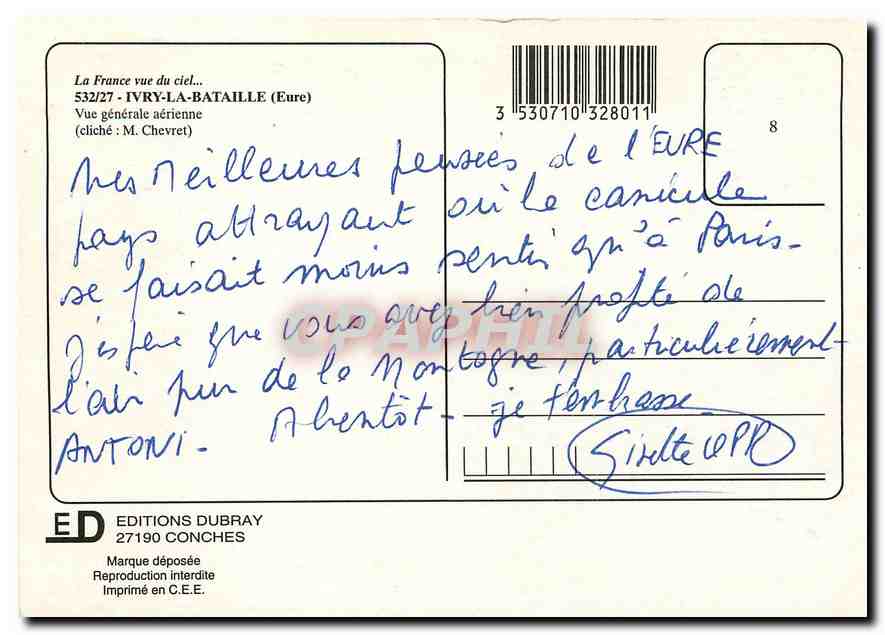 La France vue du ciel...
532/27 - IVRY-LA-BATAILLE (Eure)
Vue générale aérienne
(cliché : M. Chevret)
3 530710 328011
8
Mes Meilleures pensées de l'EURE
pays attrayant où le canicule
se faisait moins sentir qu'à Paris-
J'espère que vous avez bien profité de
l'air pur de la Montagne, particulièrement-
ANTONI. A bientôt - je t'embrasse
Giselte
CPAPHIL
ED EDITIONS DUBRAY
27190 CONCHES
Marque déposée
Reproduction interdite
Imprimé en C.E.E.